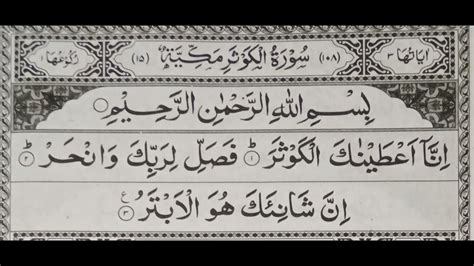 اٰیَاتُهَا ۳ (۱۰۸) سُوْرَةُ الْکَوْثَرِ مَکِّیَّةٌ (۱۵) رُکُوْعُهَا ۱
بِسْمِ اللّٰهِ الرَّحْمٰنِ الرَّحِیْمِ
اِنَّاۤ اَعْطَیْنٰكَ الْکَوْثَرَ ؕ۱ فَصَلِّ لِرَبِّكَ وَانْحَرْ ؕ۲
اِنَّ شَانِئَكَ هُوَ الْاَبْتَرُ ۳ ع